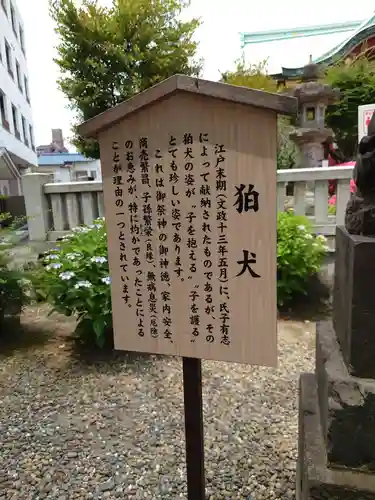 狛犬
江戸末期（文政十三年五月）に、氏子有志
によって献納されたものであるが、その
狛犬の姿が“子を抱く”“子を護る”
とても珍しい姿であります。
これは御祭神の御神徳、家内安全、
商売繁昌、子孫繁栄（良縁）、無病息災（厄除）
のお恵みが、特に均かなことによる
ことが理由の一つとされています。